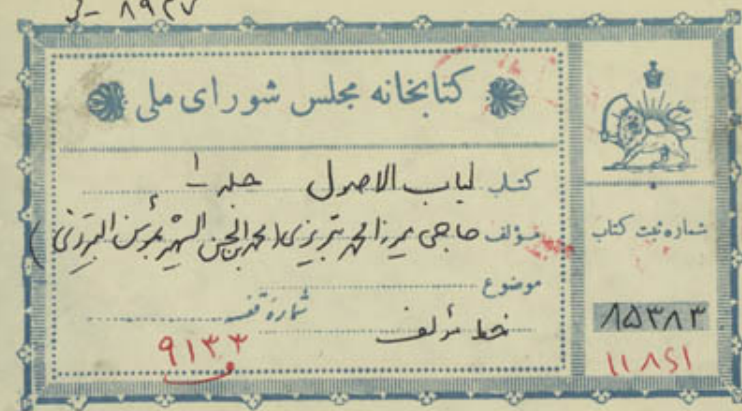 کتابخانه مجلس شورای ملی
کتاب لباب الاصول جلد ۱
مؤلف حاجی میرزا محمد تبریزی (محمد بن الحسن الشهیر
موضوع
خط مؤلف شماره قفسه
۹۱۳۳
شماره ثبت کتاب
۸۵۳۸۳